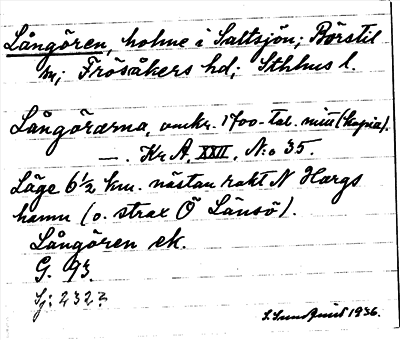 Långören, holme i Saltsjön; Börstil
sn; Frösåkers hd; Sthlms l.
Långörærna, omkr. 1700-tal. mem (kopia).
—. Kr A, XXII, N:o 35.
Läge 6½ km. nästan rakt N Hargs
hamn (o. strax Ö Länsö).
Långören ek.
G. 93.
Sj: 2322
S. Sundqvist 1936.